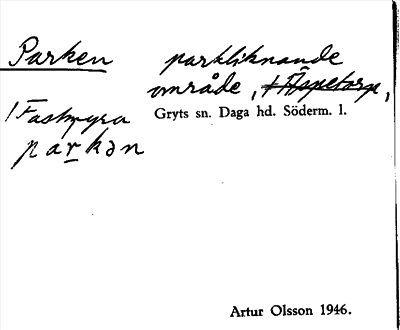 Parken parkliknande
område, t Äspetorp,
/ Fastmyra Gryts sn. Daga hd. Söderm. l.
parkən
Artur Olsson 1946.